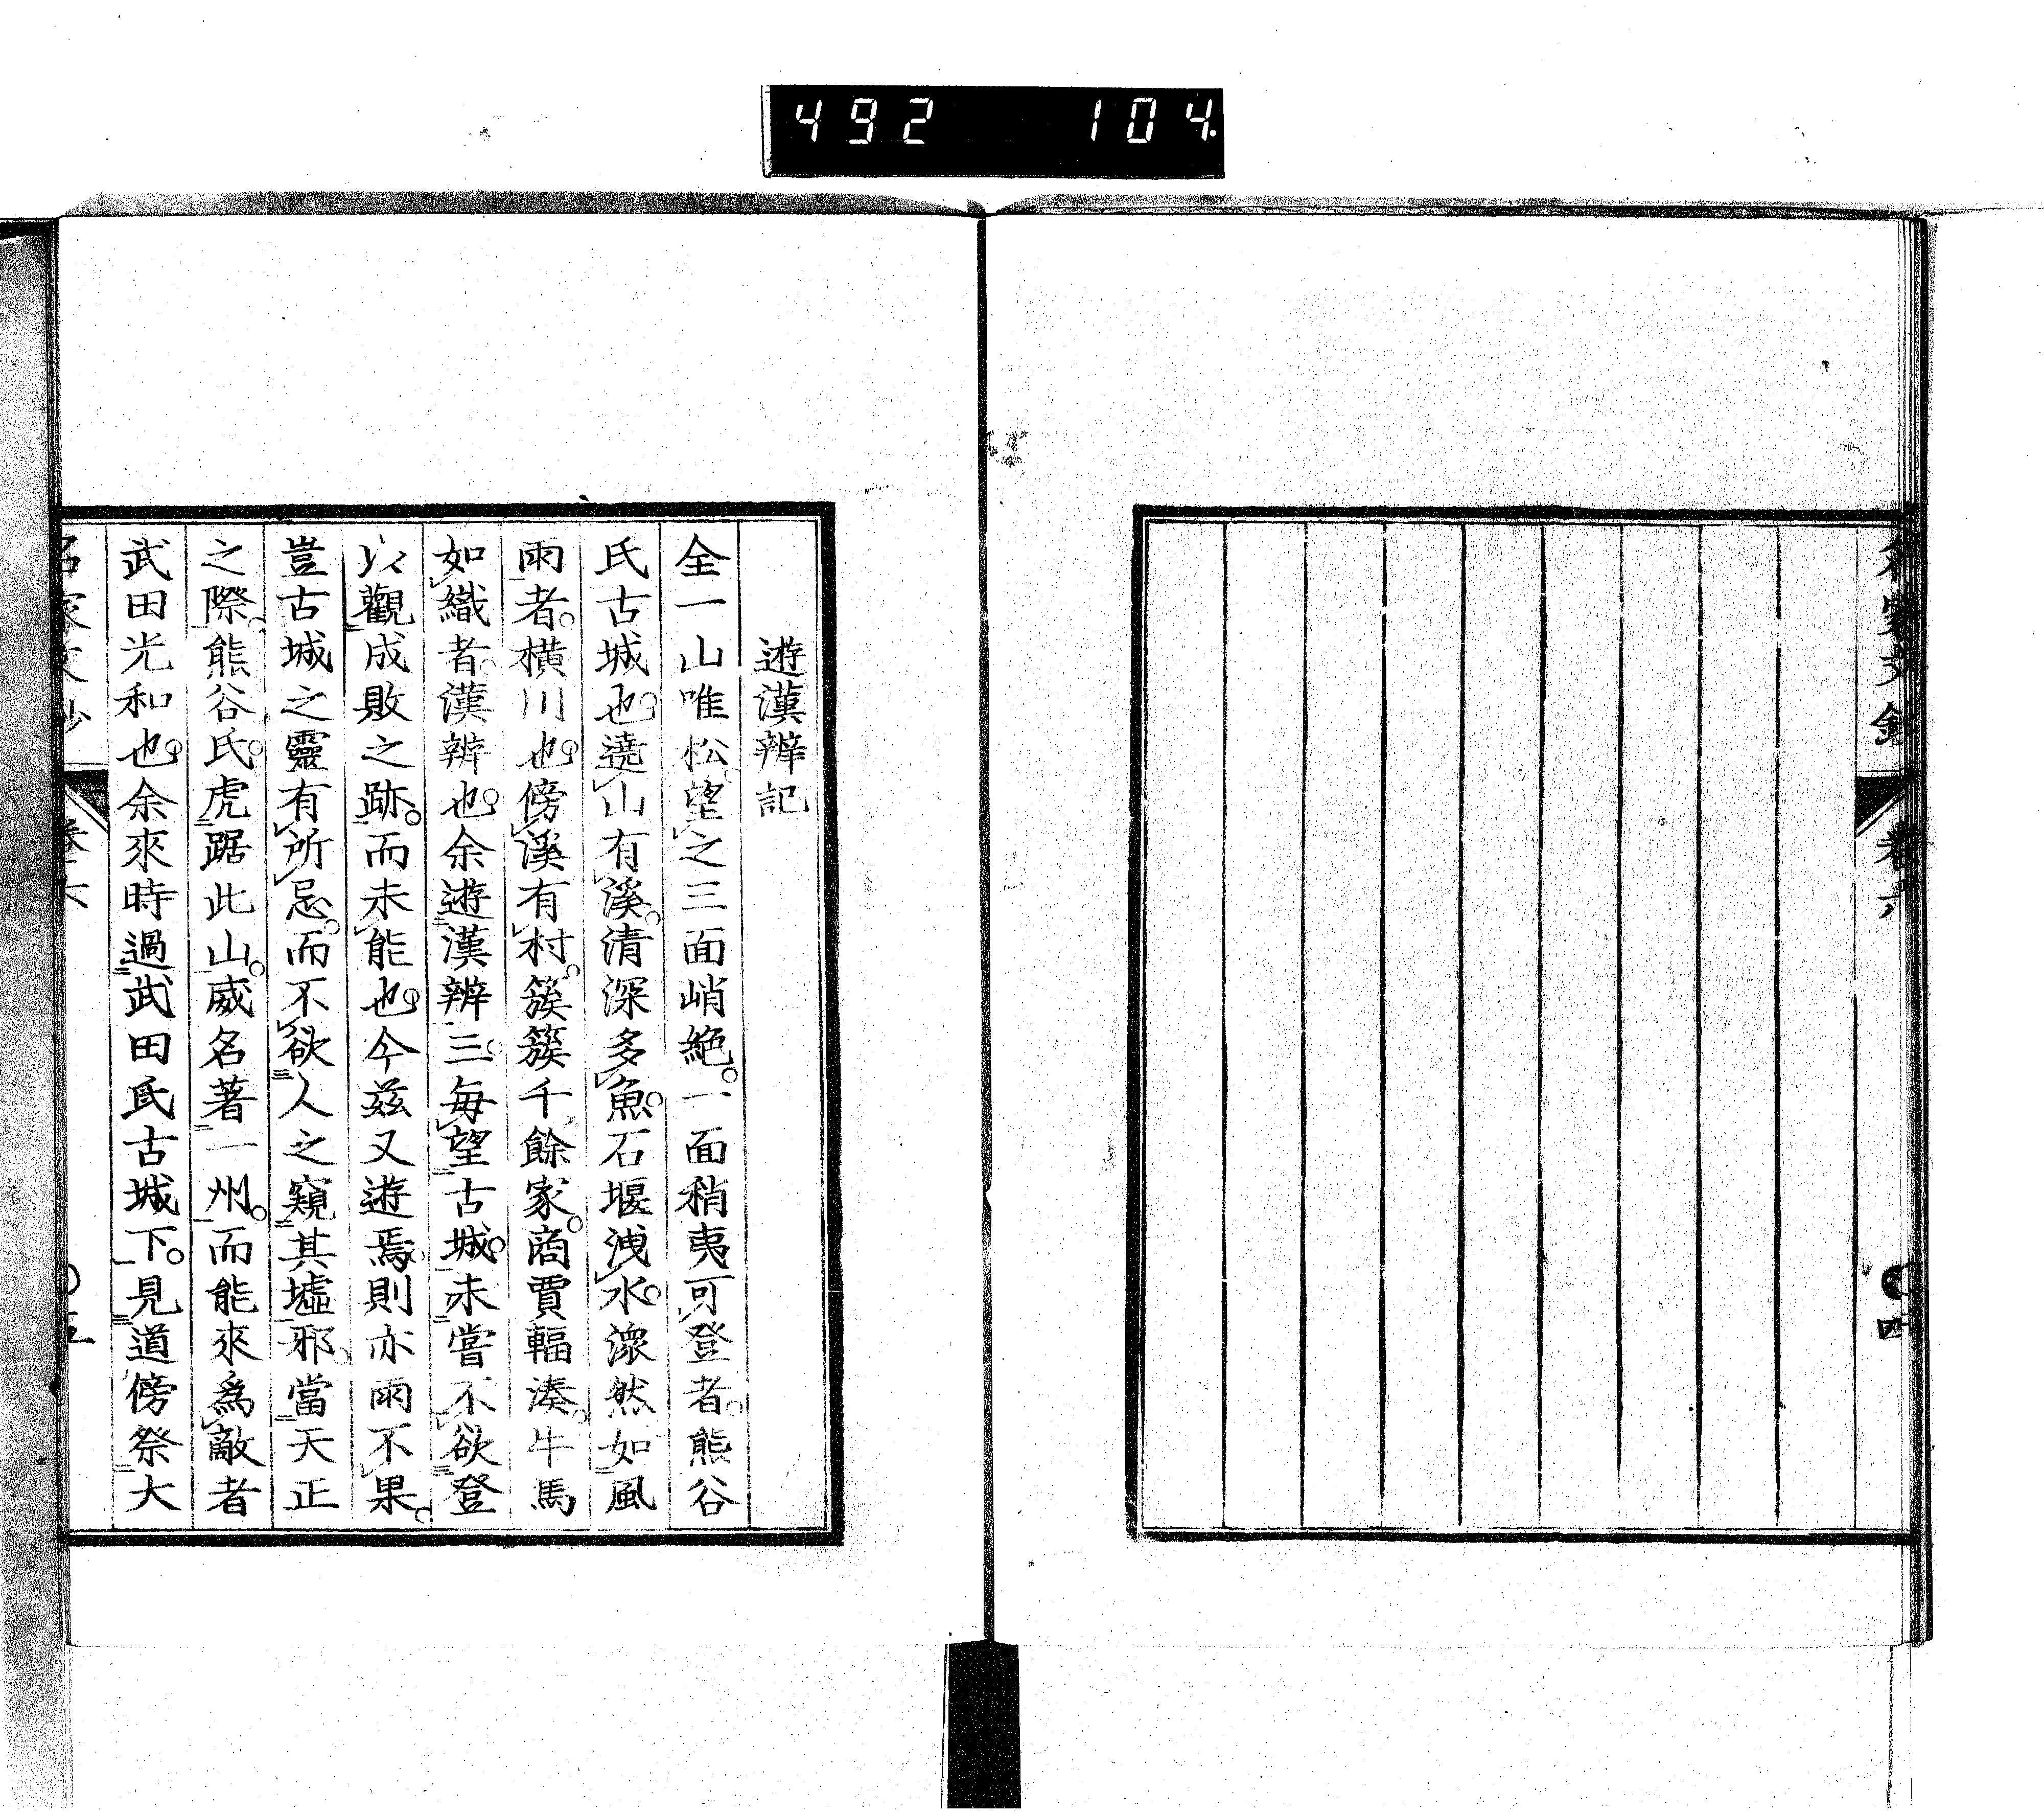 492 104
名家文鈔 卷六 〇四
遊漢辨記
全一山唯松望之三面峭絶。一面稍夷可登者。熊谷
氏古城也。遶山有溪。清深多魚。石堰洩水。潨然如風
雨者。橫川也。傍溪有村。簇簇千餘家。商賈輻湊。牛馬
如織者。漢辨也。余遊漢辨三。每望古城。未嘗不欲登
以觀成敗之跡。而未能也。今茲又遊焉。則亦雨不果。
豈古城之靈有所忌。而不欲人之窺其墟邪。當天正
之際。熊谷氏。虎踞此山。威名著一州。而能來爲敵者
武田光和也。余來時過武田氏古城下。見道傍祭大
名家文鈔 卷六 〇五